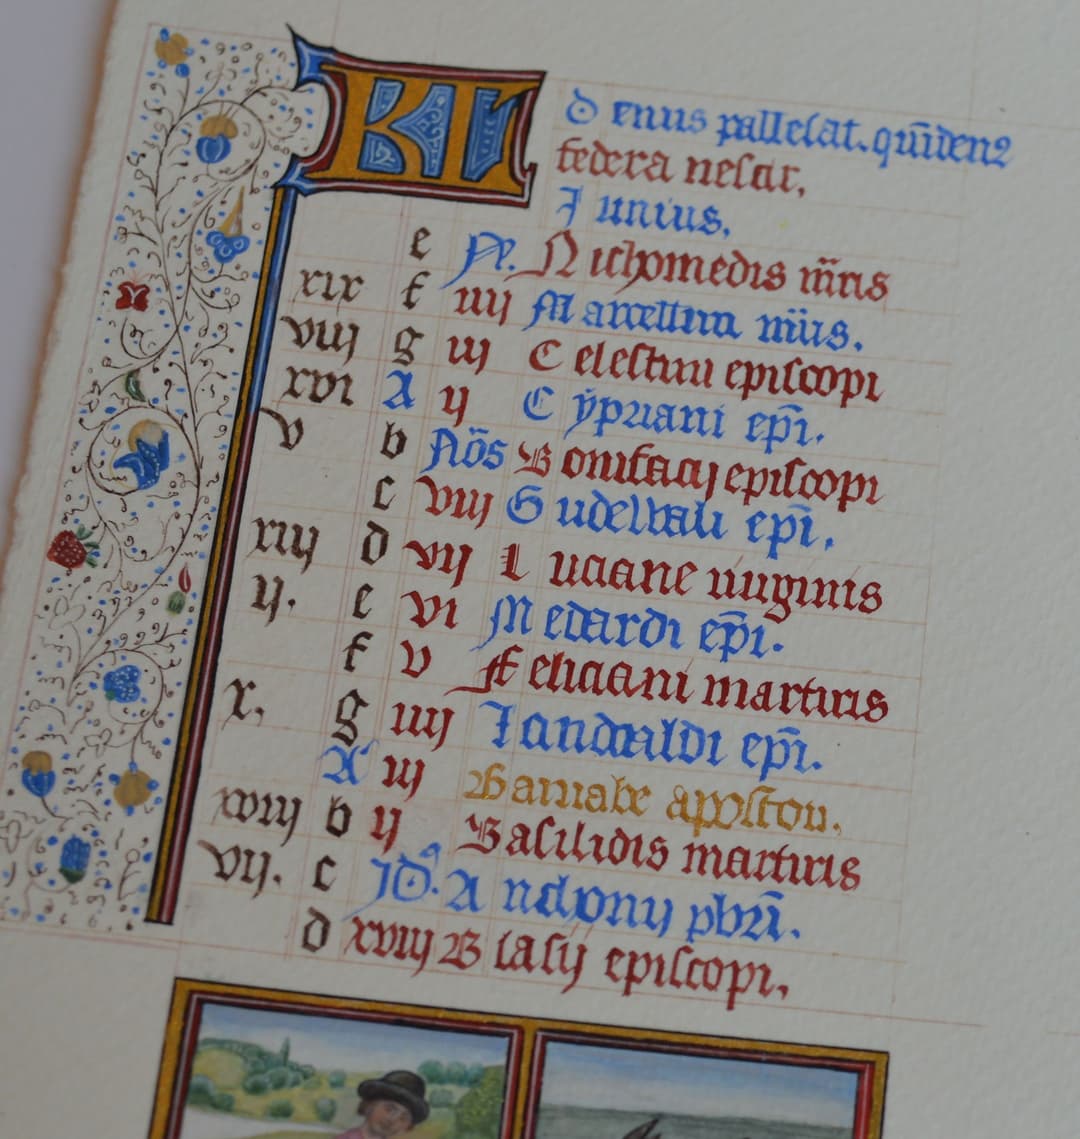 KL D enus pallescat. quīdenz
federa nescit,
Junius,
e N. Nichomedis m̄ris
xix f iiij Marcellini m̄ris.
viij g iij Celestini episcopi
xvi A ij Cypriani ep̄i.
v b Nōs Bonifacij episcopi
c viij Gudelbali ep̄i.
xiij d vij Luciane virginis
ij. e vi Medardi ep̄i.
f v Feliciani martiris
x. g iiij Landraldi ep̄i.
A iij Barnabe apostoli.
xviij b ij Basilidis martiris
vij. c Id9. Anthonij pbrī.
d xviij Blasij episcopi,